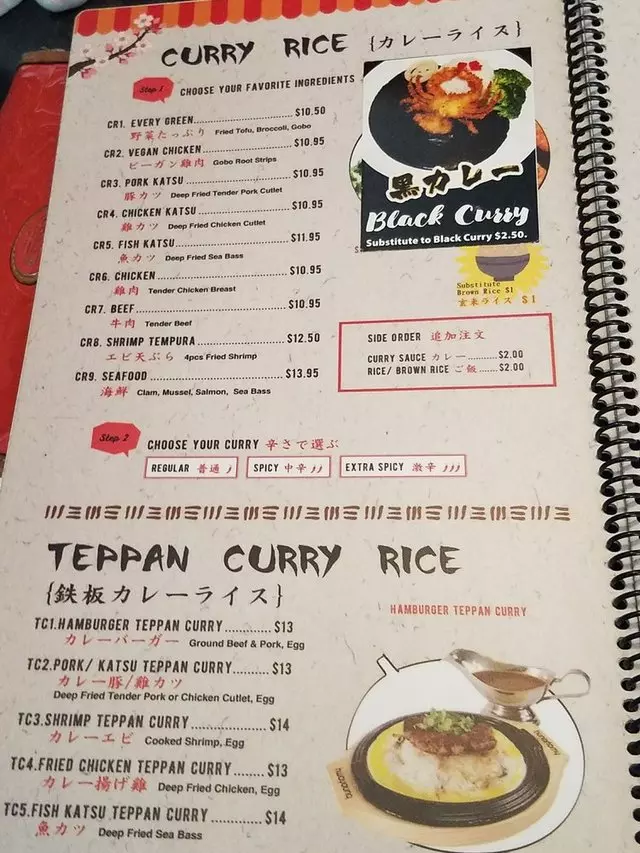 CURRY RICE {カレーライス}
Step 1 CHOOSE YOUR FAVORITE INGREDIENTS
CR1. EVERY GREEN..............................$10.50
野菜たっぷり Fried Tofu, Broccoli, Gobo
CR2. VEGAN CHICKEN..............................$10.95
ビーガン雞肉 Gobo Root Strips
CR3. PORK KATSU..............................$10.95
豚カツ Deep Fried Tender Pork Cutlet
CR4. CHICKEN KATSU..............................$10.95
雞カツ Deep Fried Chicken Cutlet
CR5. FISH KATSU..............................$11.95
魚カツ Deep Fried Sea Bass
CR6. CHICKEN..............................$10.95
雞肉 Tender Chicken Breast
CR7. BEEF..............................$10.95
牛肉 Tender Beef
CR8. SHRIMP TEMPURA..............................$12.50
エビ天ぷら 4pcs Fried Shrimp
CR9. SEAFOOD..............................$13.95
海鮮 Clam, Mussel, Salmon, Sea Bass
黒カレー
Black Curry
Substitute to Black Curry $2.50.
Substitute
Brown Rice $1
玄米ライス $1
SIDE ORDER 追加注文
CURRY SAUCE カレー..........$2.00
RICE/ BROWN RICE ご飯......$2.00
Step 2 CHOOSE YOUR CURRY 辛さで選ぶ
REGULAR 普通 SPICY 中辛 EXTRA SPICY 激辛
TEPPAN CURRY RICE
{鉄板カレーライス}
HAMBURGER TEPPAN CURRY
TC1.HAMBURGER TEPPAN CURRY............$13
カレーバーガー Ground Beef & Pork, Egg
TC2.PORK/ KATSU TEPPAN CURRY..........$13
カレー豚/雞カツ
Deep Fried Tender Pork or Chicken Cutlet, Egg
TC3.SHRIMP TEPPAN CURRY....................$14
カレーエビ Cooked Shrimp, Egg
TC4.FRIED CHICKEN TEPPAN CURRY.......$13
カレー揚げ雞 Deep Fried Chicken, Egg
TC5.FISH KATSU TEPPAN CURRY...........$14
魚カツ Deep Fried Sea Bass